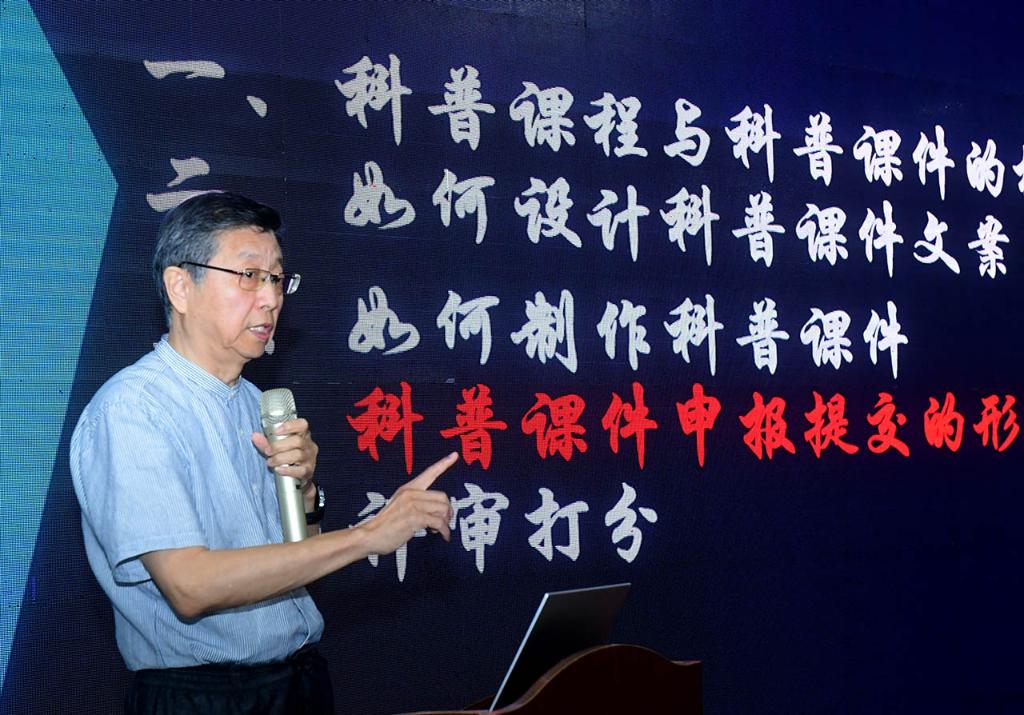 一、 科普课程与科普课件的
二 如何设计科普课件文案
如何制作科普课件
科普课件申报提交的形
评审打分